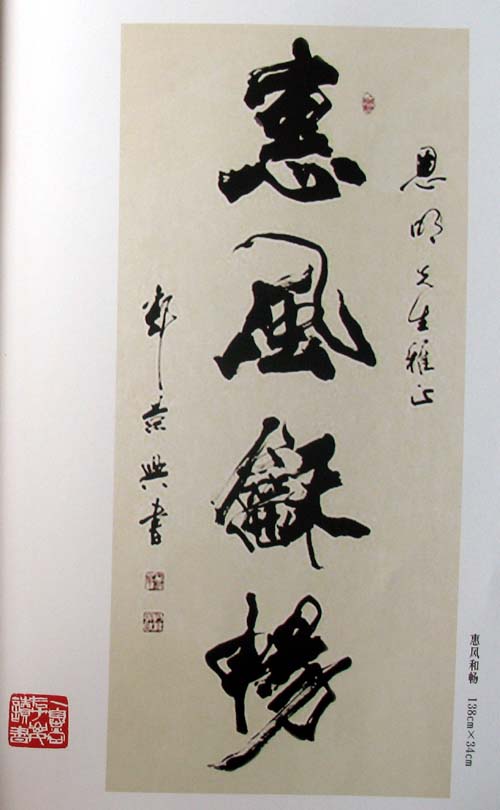 恩明先生雅正
惠風龢暢
景興書
惠风和畅 138cm×34cm